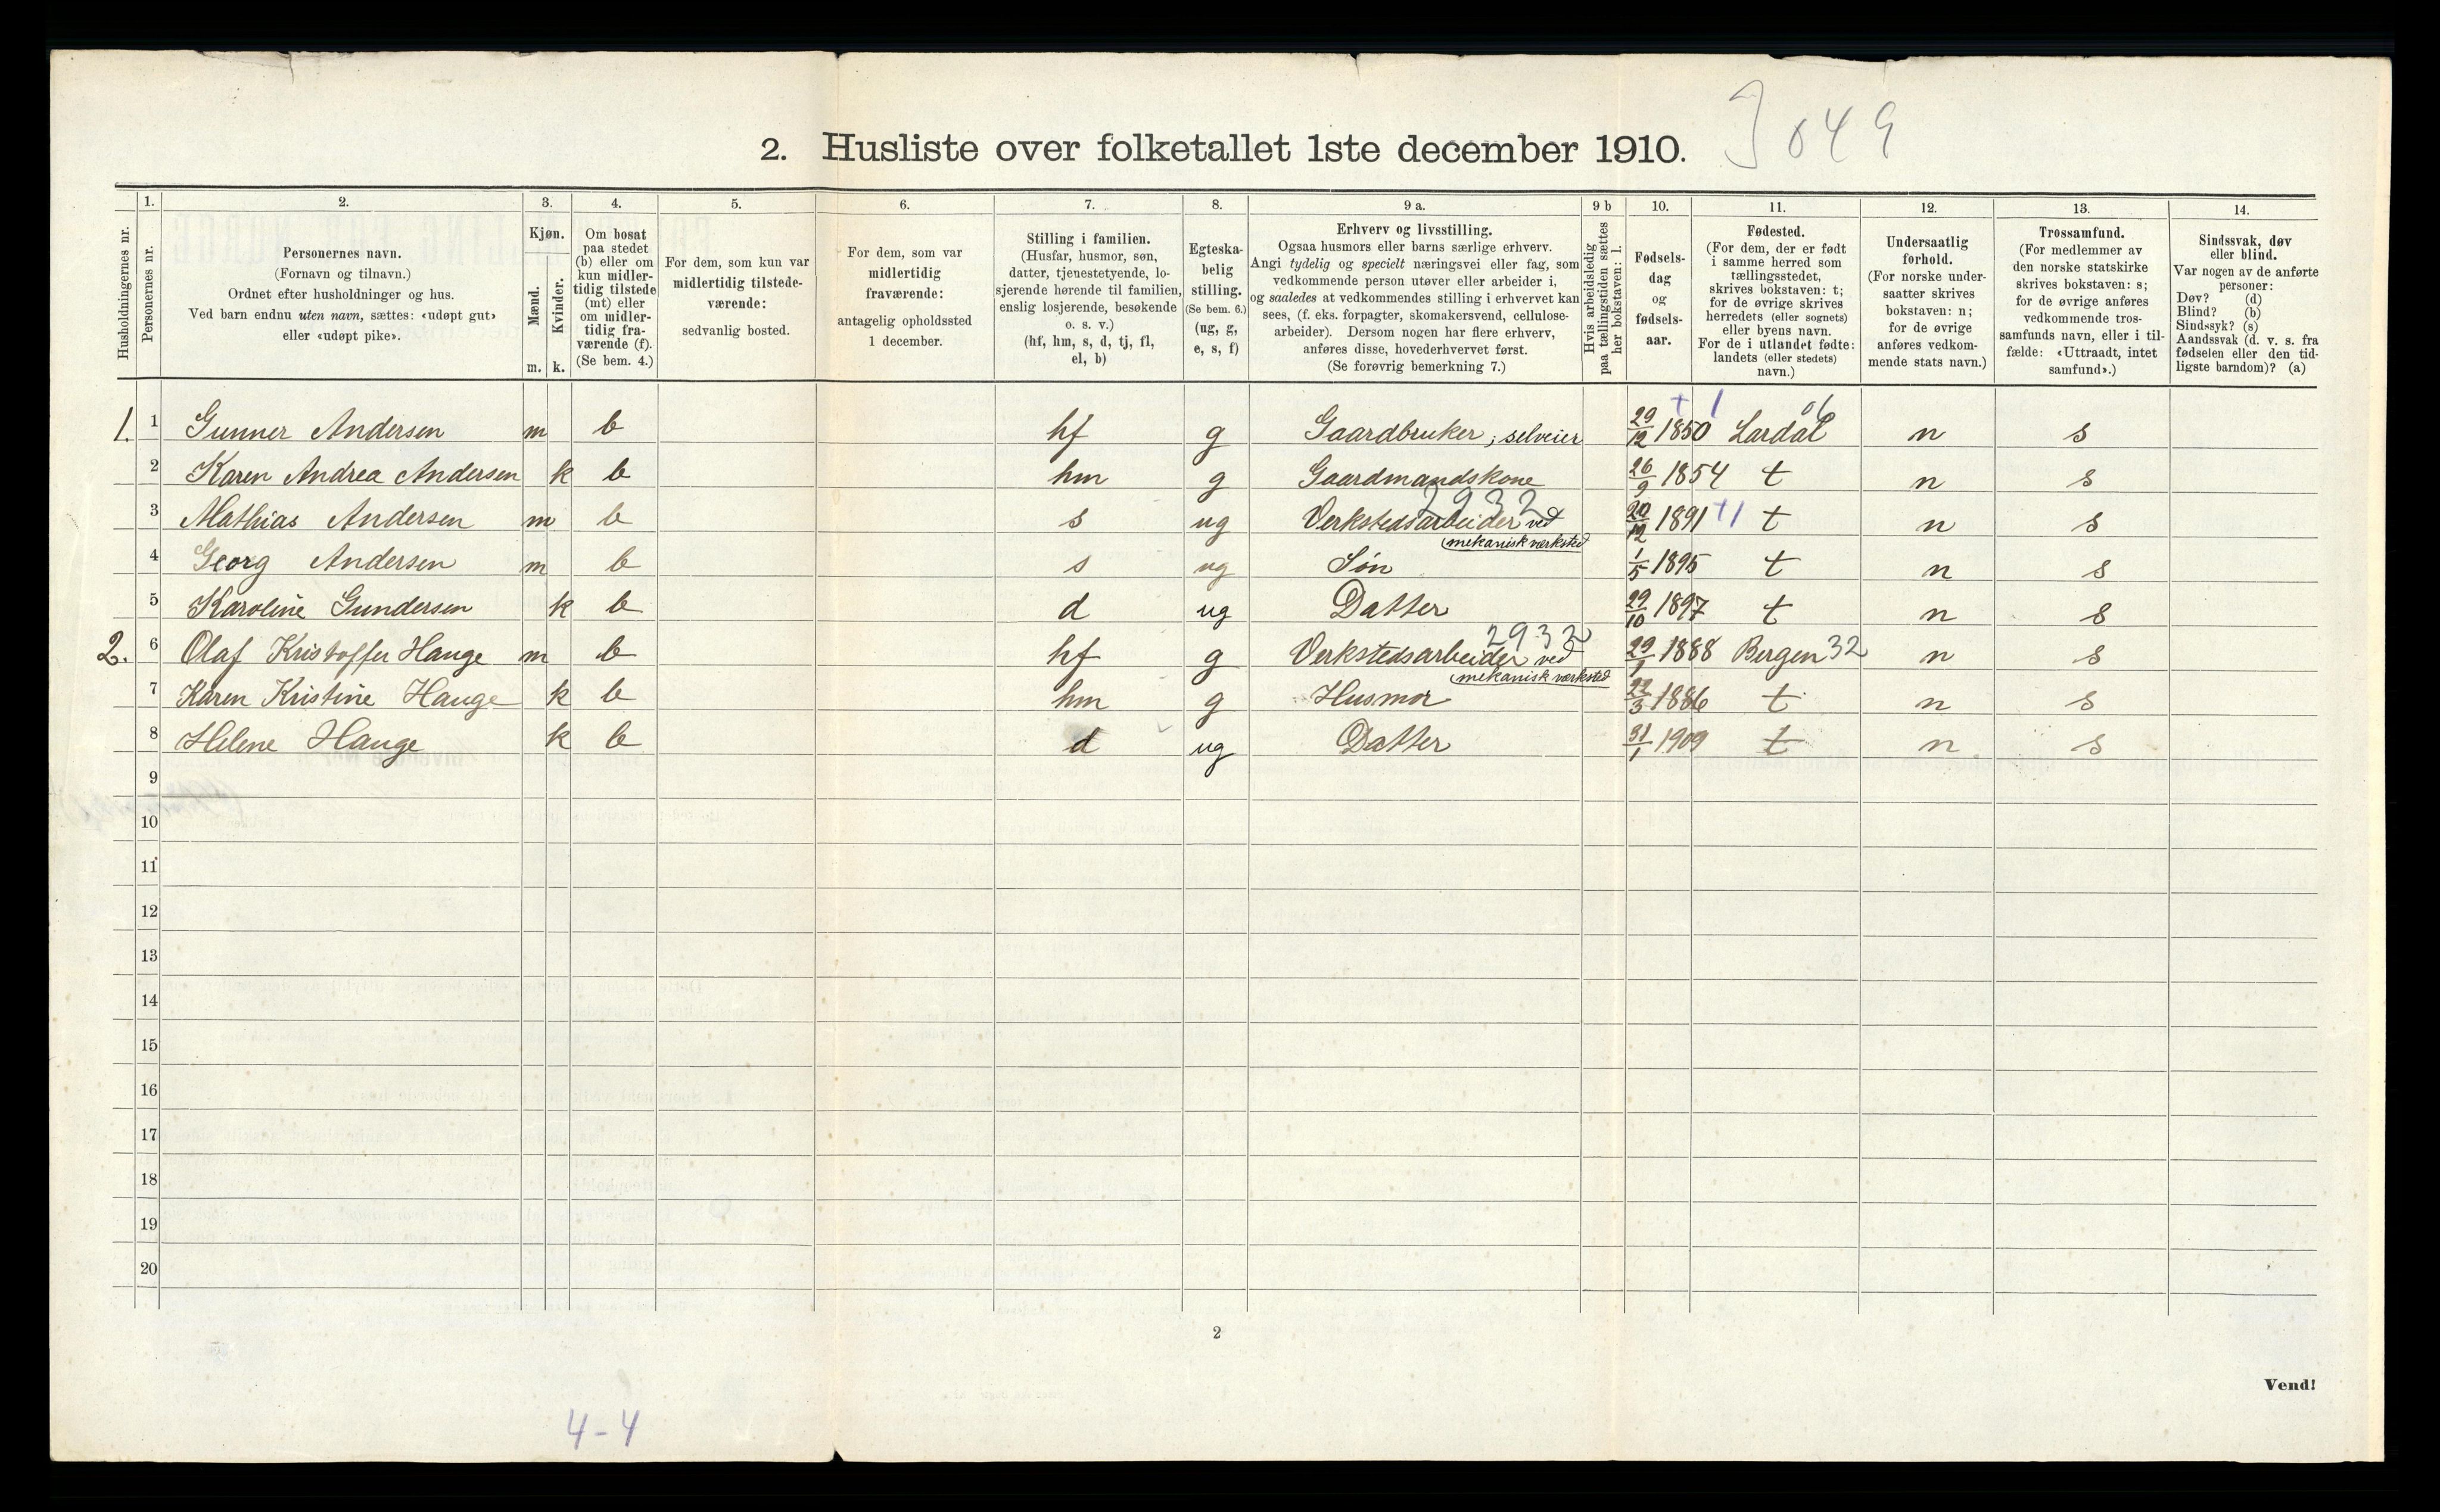 2. Husliste over folketallet 1ste december 1910.
049
Husholdningernes nr.
1.
Personernes nr.
2.
Personernes navn.
(Fornavn og tilnavn.)
Ordnet efter husholdninger og hus.
Ved barn endnu uten navn, sættes: «udøpt gut»
eller «udøpt pike».
3.
Kjøn.
Mænd.
Kvinder.
m. k.
4.
Om bosat
paa stedet
(b) eller om
kun midler-
tidig tilstede
(mt) eller
om midler-
tidig fra-
værende (f).
(Se bem. 4.)
5.
For dem, som kun var
midlertidig tilstede-
værende:
sedvanlig bosted.
6.
For dem, som var
midlertidig
fraværende:
antagelig opholdssted
1 december.
7.
Stilling i familien.
(Husfar, husmor, søn,
datter, tjenestetyende, lo-
sjerende hørende til familien,
enslig losjerende, besøkende
o. s. v.)
(hf, hm, s, d, tj, fl,
el, b)
8.
Egteska-
belig
stilling.
(Se bem. 6.)
(ug, g,
e, s, f)
9 a.
Erhverv og livsstilling.
Ogsaa husmors eller barns særlige erhverv.
Angi tydelig og specielt næringsvei eller fag, som
vedkommende person utøver eller arbeider i,
og saaledes at vedkommendes stilling i erhvervet kan
sees, (f. eks. forpagter, skomakersvend, cellulose-
arbeider). Dersom nogen har flere erhverv,
anføres disse, hovederhvervet først.
(Se forøvrig bemerkning 7.)
9 b
Hvis arbeidsledig
paa tællingstiden sættes
her bokstaven: l.
10.
Fødsels-
dag
og
fødsels-
aar.
11.
Fødested.
(For dem, der er født
i samme herred som
tællingsstedet,
skrives bokstaven: t;
for de øvrige skrives
herredets (eller sognets)
eller byens navn.
For de i utlandet fødte:
landets (eller stedets)
navn.)
12.
Undersaatlig
forhold.
(For norske under-
saatter skrives
bokstaven: n;
for de øvrige
anføres vedkom-
mende stats navn.)
13.
Trossamfund.
(For medlemmer av
den norske statskirke
skrives bokstaven: s;
for de øvrige anføres
vedkommende tros-
samfunds navn, eller i til-
fælde: «Uttraadt, intet
samfund».)
14.
Sindssvak, døv
eller blind.
Var nogen av de anførte
personer:
Døv? (d)
Blind? (b)
Sindssyk? (s)
Aandssvak (d. v. s. fra
fødselen eller den tid-
ligste barndom)? (a)
+ 1 06
1. 1 Gunner Andersen m b hf g Gaardbruker, selveier 29/12 1850 Lardal n s
2 Karen Andrea Andersen k b hm g Gaardmandskone 26/9 1854 t n s
2932
3 Mathias Andersen m b s ug Verkstedsarbeider ved 20/12 1891 +1 t n s
mekanisk værksted
4 Georg Andersen m b s ug Søn 1/5 1895 t n s
5 Karoline Gundersen k b d ug Datter 29/10 1897 t n s
2932
2. 6 Olaf Kristoffer Hauge m b hf g Verkstedsarbeider ved 29/1 1888 Bergen 32 n s
mekanisk værksted
7 Karen Kristine Hauge k b hm g Husmor 22/3 1886 t n s
8 Helene Hauge k b d ug Datter 31/1 1909 t n s
9
10
11
12
13
14
15
16
17
18
19
20
2
Vend!
4-4